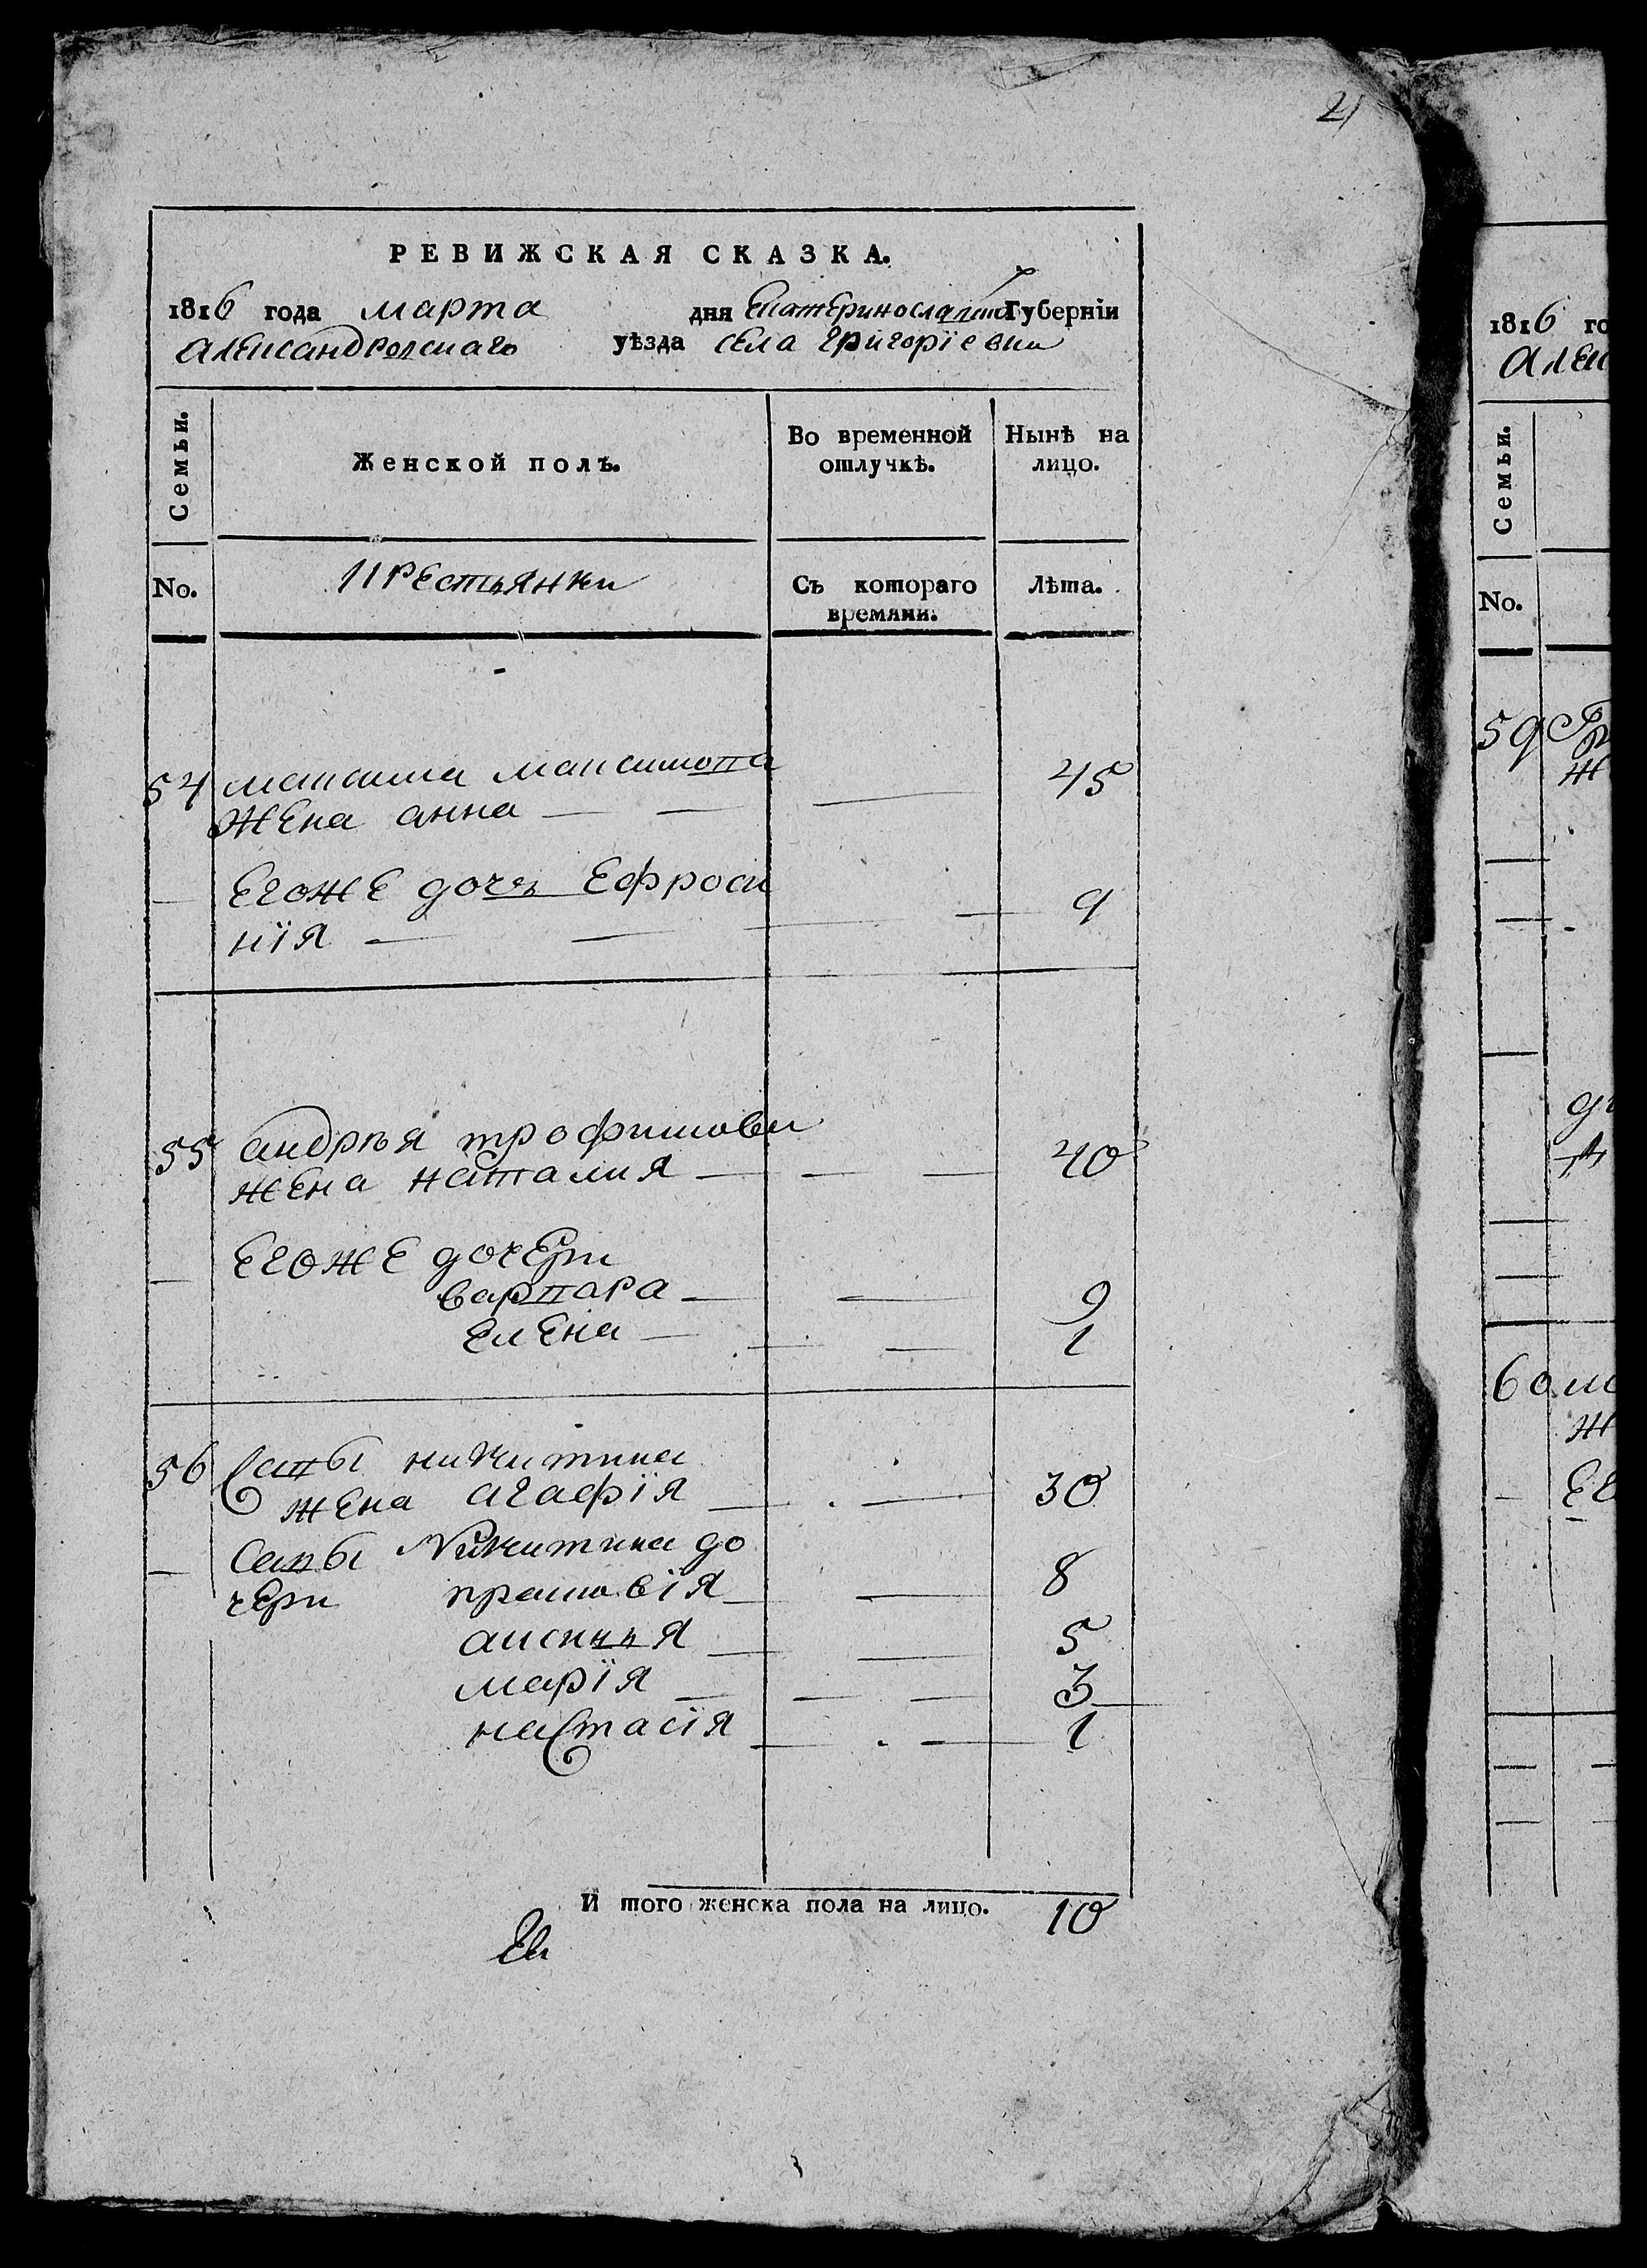 21
РЕВИЖСКАЯ СКАЗКА.
1816 года марта дня Екатеринославской Губерніи
александровскаго уѣзда села григоріевки
Семьи.
Женской полъ.
Во временной отлучкѣ.
Нынѣ на лицо.
No.
крестьянки
Съ котораго времяни.
Лѣта.
54 максима максимова
жена анна — — — 45
— Егоже дочь Ефроси
нїя — — — 9
55 андрѣя трофимова
жена наталия — — — 40
— Егоже дочери
варвара — — 9
Елена — — — 1
56 Савы никитина
жена агафїя — — 30
— Савы Никитина до
чери прасковїя — — 8
аксинья — — 5
марїя — — — 3
настасїя — — 1
И того женска пола на лицо. 10
1816 го
Алек
Семьи.
No.
59 Гр
ж
60
ж
Ег